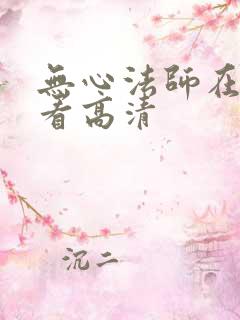 無心法師在
看高清
沉二